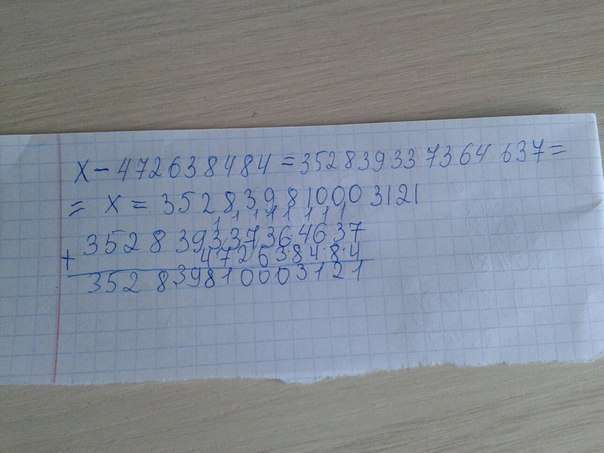 x − 472638484 = 352839337364637 =
= x = 352839810003121
1 1 1 1 1 1 1 1
352839337364637
+ 472638484
352839810003121